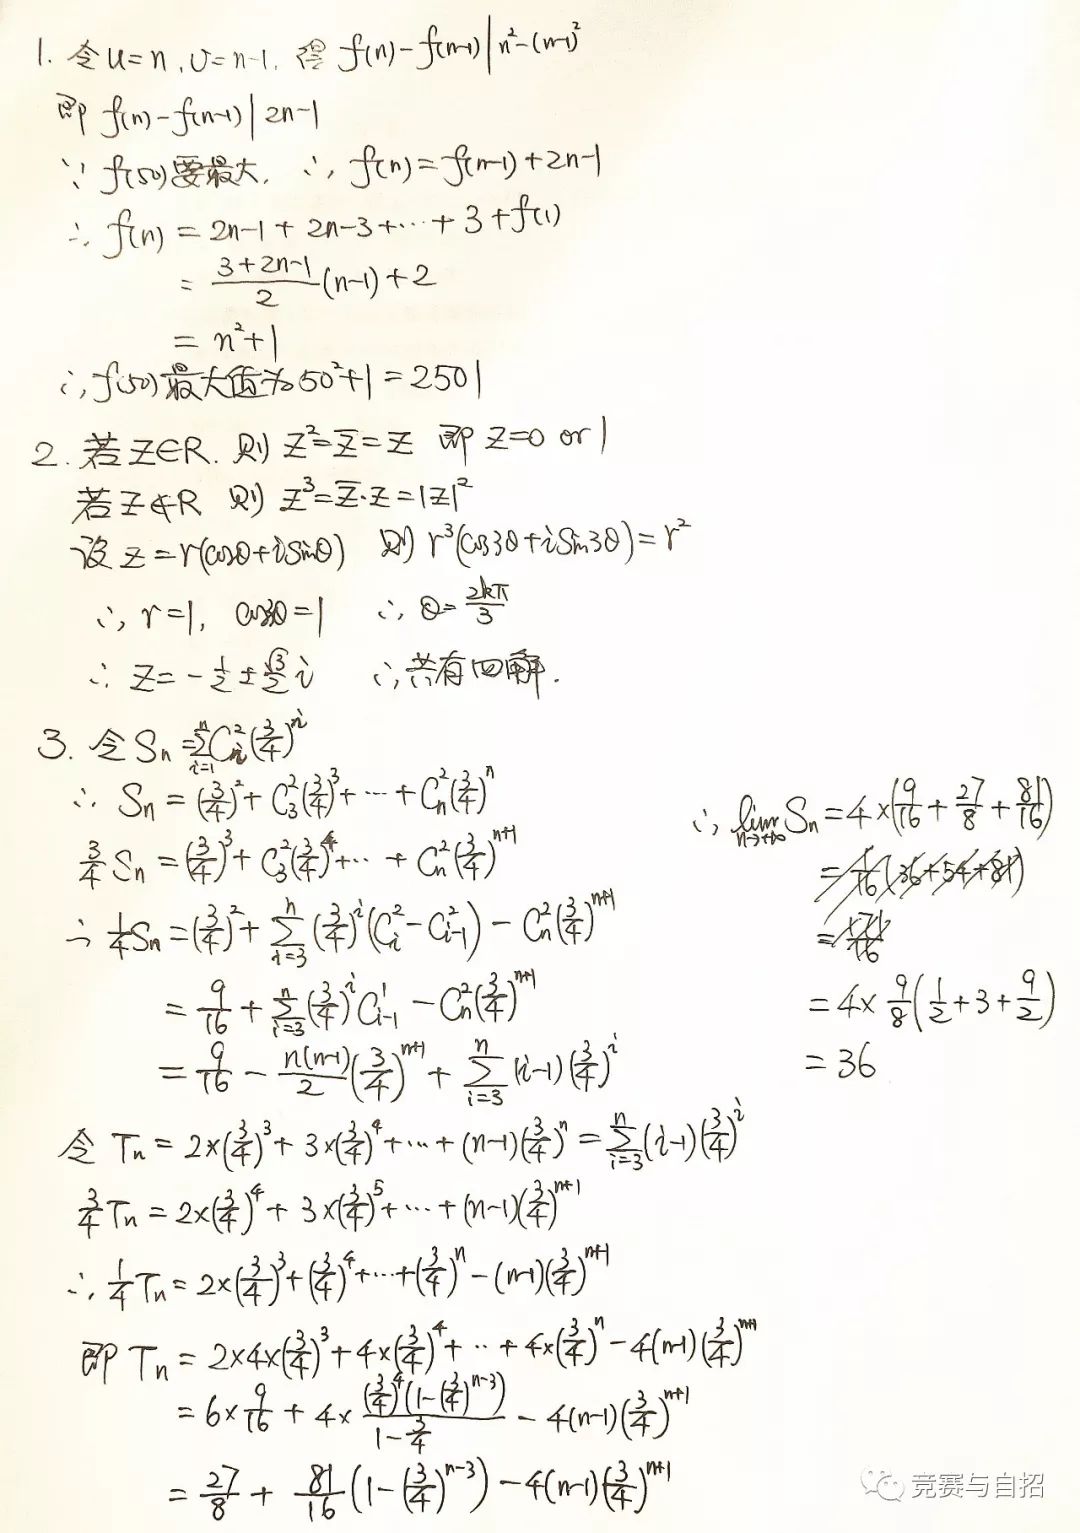 1. 令u=n, v=n-1, 得 f(n)-f(n-1)|n²-(n-1)²
即 f(n)-f(n-1)|2n-1
∵ f(50)要最大, ∴, f(n)=f(n-1)+2n-1
∴ f(n) = 2n-1+2n-3+⋯+3+f(1)
= (3+2n-1)/2 (n-1)+2
= n²+1
∴, f(50)最大值为50²+1=2501
2. 若Z∈R. 则 Z²=Z̄=Z 即 Z=0 or 1
若Z∉R 则 Z³=Z̄·Z=|Z|²
设 Z=r(cosθ+isinθ) 则 r³(cos3θ+iSin3θ)=r²
∴, r=1, cos3θ=1 ∴, θ=2kπ/3
∴ Z=-1/2±√3/2 i ∴, 共有四解.
3. 令 Sn=∑_{i=1}^{n}C_i²(3/4)^i
∴ Sn=(3/4)²+C_3²(3/4)³+⋯+C_n²(3/4)^n
3/4 Sn=(3/4)³+C_3²(3/4)⁴+⋯+C_n²(3/4)^{n+1}
∴ 1/4 Sn=(3/4)²+∑_{i=3}^{n}(3/4)^i(C_i²-C_{i-1}²)-C_n²(3/4)^{n+1}
= 9/16+∑_{i=3}^{n}(3/4)^i C_{i-1}^1-C_n²(3/4)^{n+1}
= 9/16-n(n-1)/2 (3/4)^{n+1}+∑_{i=3}^{n}(i-1)(3/4)^i
令 Tn=2×(3/4)³+3×(3/4)⁴+⋯+(n-1)(3/4)^n=∑_{i=3}^{n}(i-1)(3/4)^i
3/4 Tn=2×(3/4)⁴+3×(3/4)⁵+⋯+(n-1)(3/4)^{n+1}
∴, 1/4 Tn=2×(3/4)³+(3/4)⁴+⋯+(3/4)^n-(n-1)(3/4)^{n+1}
即 Tn=2×4×(3/4)³+4×(3/4)⁴+⋯+4×(3/4)^n-4(n-1)(3/4)^{n+1}
= 6×9/16+4×((3/4)⁴(1-(3/4)^{n-3}))/(1-3/4)-4(n-1)(3/4)^{n+1}
= 27/8+81/16(1-(3/4)^{n-3})-4(n-1)(3/4)^{n+1}
∴, lim_{n→+∞} Sn=4×(9/16+27/8+81/16)
= 1/16(36+54+81)
= 171/16
= 4×9/8(1/2+3+9/2)
= 36
竞赛与自招